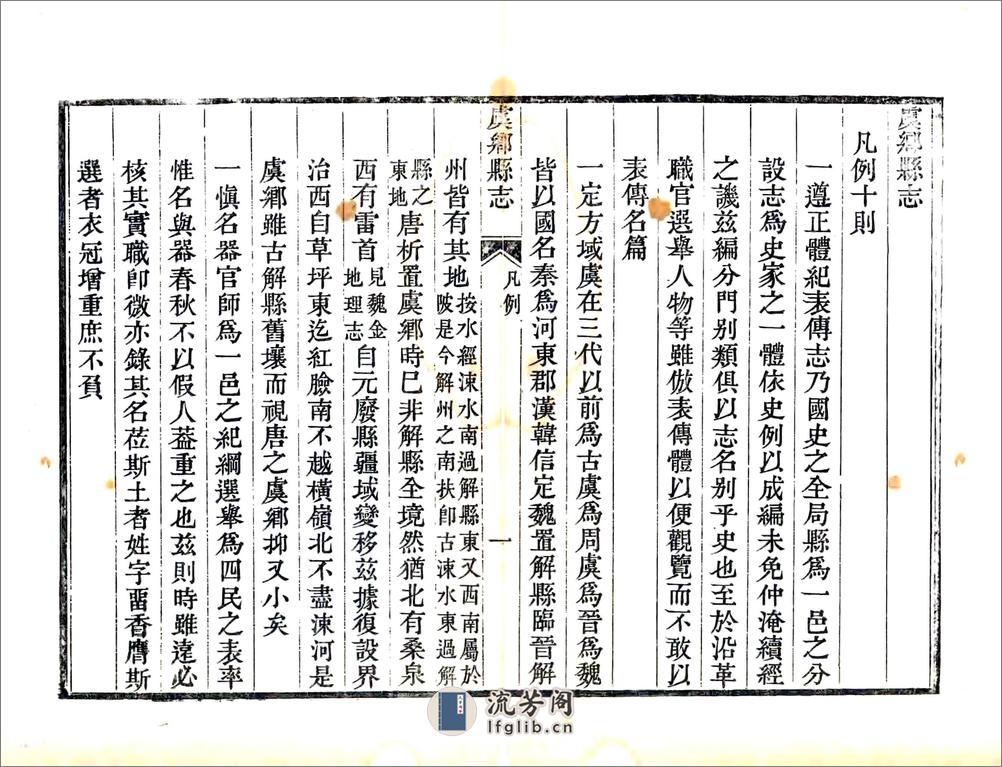 虞鄉縣志
凡例十則
一遵正體紀表傳志乃國史之全局縣爲一邑之分
設志爲史家之一體依史例以成編未免仲淹續經
之譏茲編分門别類俱以志名别乎史也至於沿革
職官選舉人物等雖倣表傳體以便觀覽而不敢以
表傳名篇
一定方域虞在三代以前爲古虞爲周虞爲晉爲魏
皆以國名秦爲河東郡漢韓信定魏置解縣臨晉解
虞鄉縣志
凡例
一
州皆有其地按水經涑水南過解縣東又西南屬於陂是今解州之南扶卽古涑水東過解
縣之東地唐析置虞鄉時巳非解縣全境然猶北有桑泉
西有雷首見魏金地理志自元廢縣疆域變移茲據復設界
治西自草坪東迄紅臉南不越橫嶺北不盡涑河是
虞鄉雖古解縣舊壤而視唐之虞鄉抑又小矣
一愼名器官師爲一邑之紀綱選舉爲四民之表率
惟名與器春秋不以假人葢重之也茲則時雖遠必
核其實職卽微亦錄其名莅斯土者姓字畱香膺斯
選者衣冠增重庶不負
流芳阁
lfglib.cn